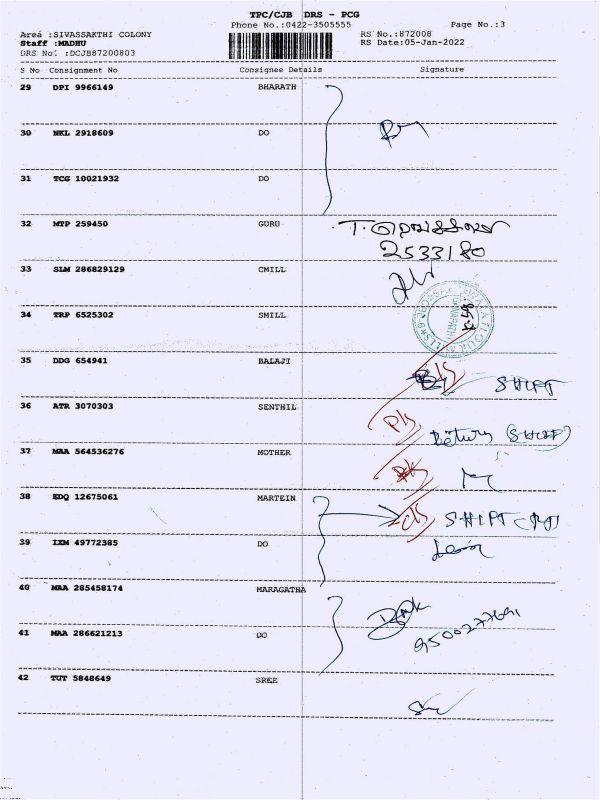 TPC/CJB DRS - PCG
Phone No.:0422-3505555
Page No.:3
Area :SIVASSAKTHI COLONY
RS No.:872008
Staff :MADHU
RS Date:05-Jan-2022
DRS No. :DCJB87200803
S No Consignment No Consignee Details Signature
29 DPI 9966149 BHARATH
30 NKL 2918609 DO
31 TCG 10021932 DO
32 MTP 259450 GURU
2533180
33 SLM 286829129 CMILL
34 TRP 6525302 SMILL
35 DDG 654941 BALAJI
SHIFT
36 ATR 3070303 SENTHIL
Return (SHIF)
37 MAA 564536276 MOTHER
38 EDQ 12675061 MARTEIN
SHIFT
39 IXM 49772385 DO
40 MAA 285458174 MARAGATHA
41 MAA 286621213 DO
42 TUT 5848649 SREE